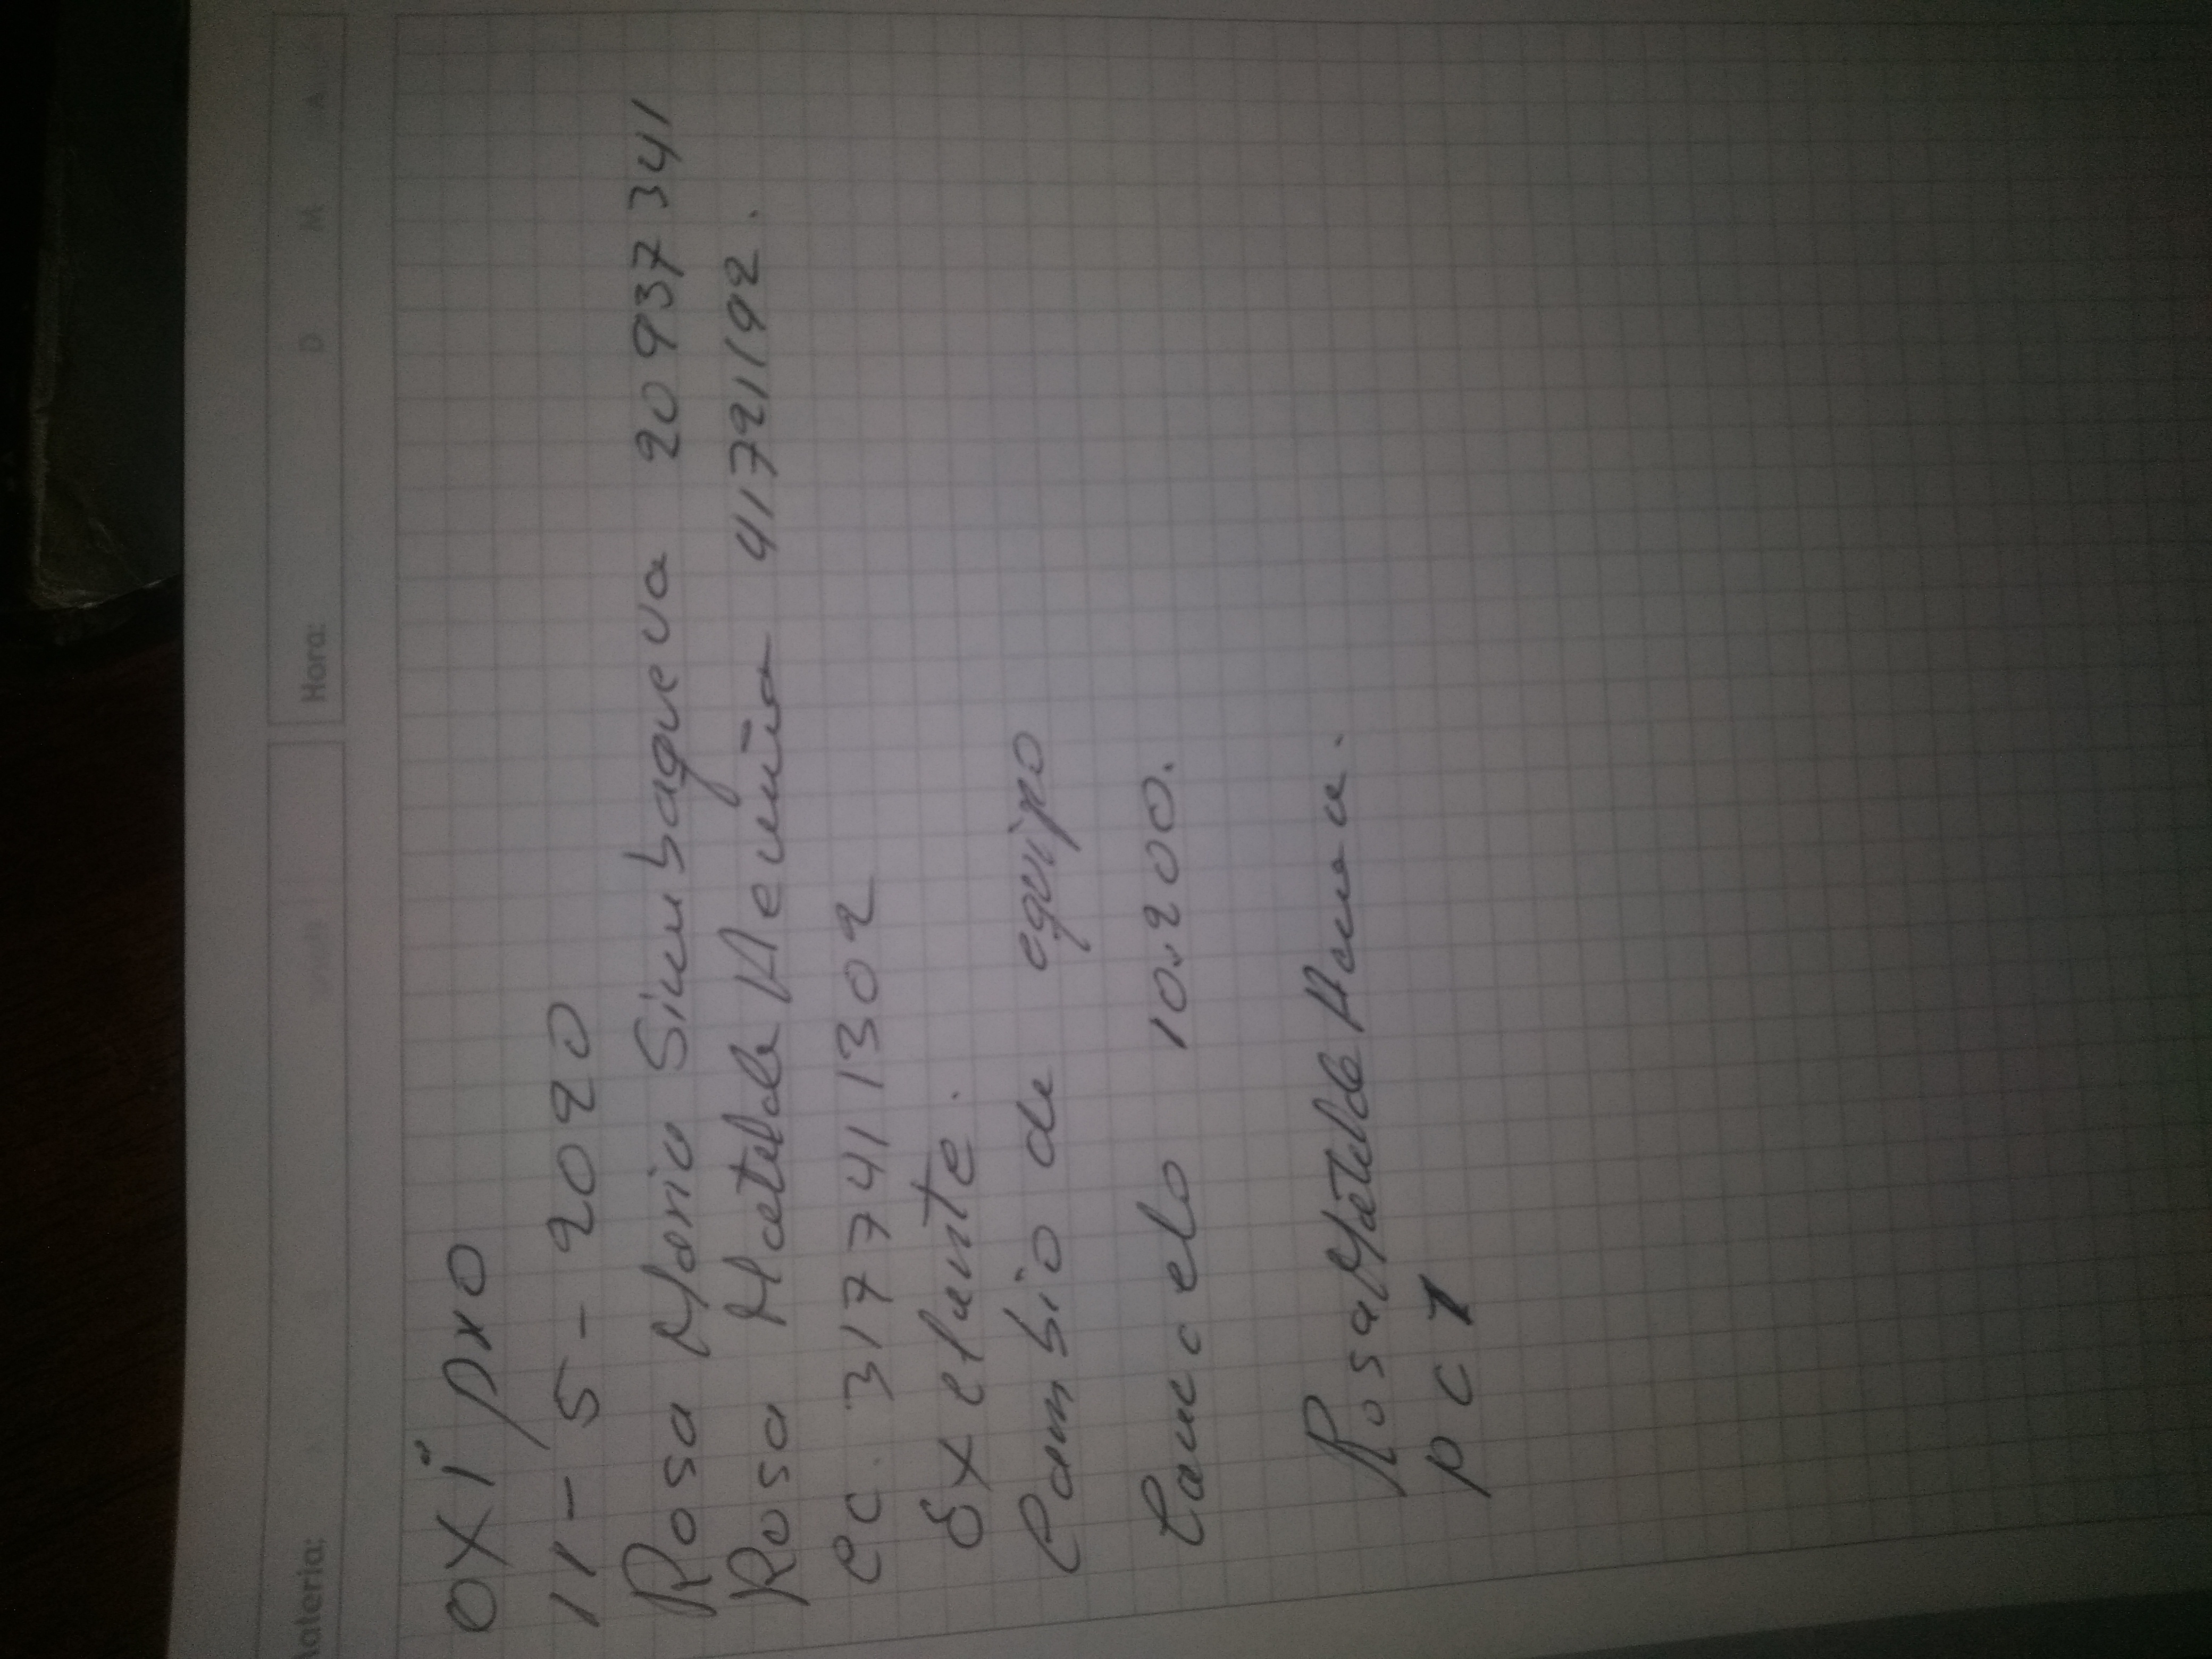 Materia:
Hora: D M A
oxi pro
11 - 5 - 2020
Rosa Maria Simbaqueva 20 937 341
Rosa Matilde 41721192.
cc. 317 741 1302
Exelente.
Cambio de equipo
Cancelo 10.200.
Rosa Matilde
p c 1